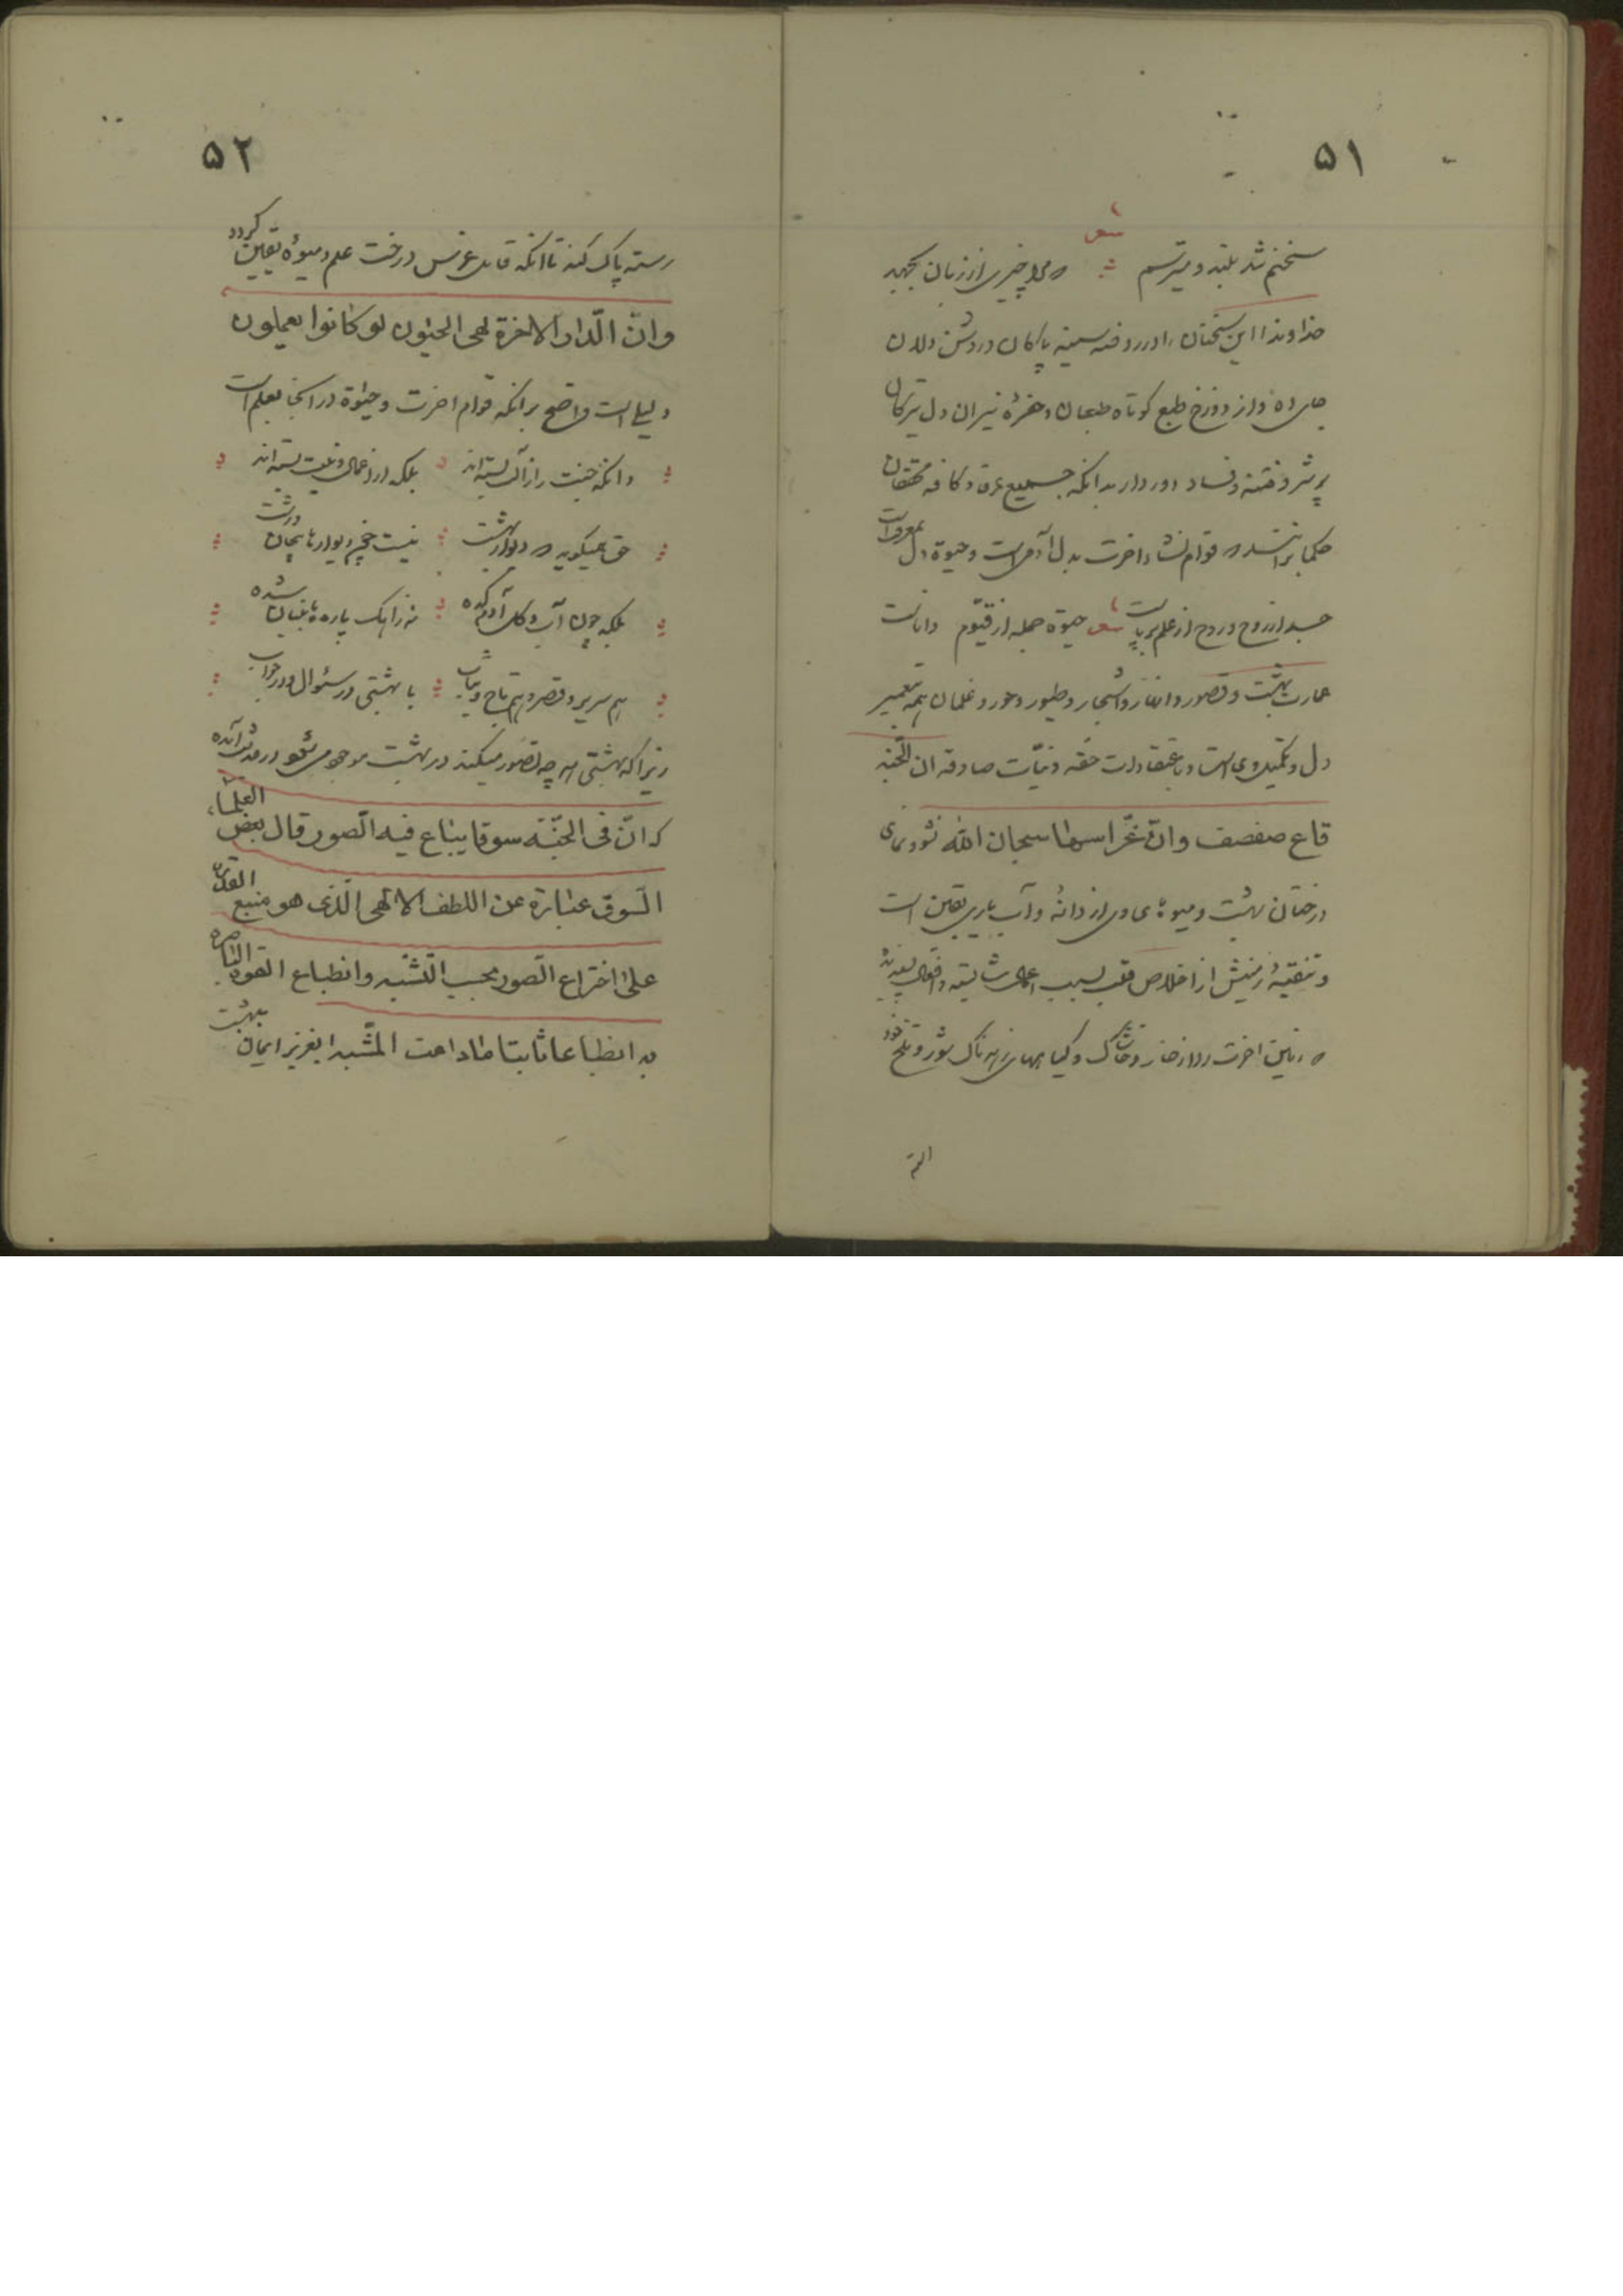 ۵۱
شعر
سخنم شد بلند و میترسم که مرا چیزی از زبان بجهد
خداوندا این سخنان را در روضه سینه پاکان و روشن دلان
جای ده و از دوزخ طبع کوتاه طبعان و حفرهٔ نیران دل تیرگان
پر شر و فتنه و فساد دور دار بدانکه جمیع عرفا و کافه محققان
حکما برانند که قوام نشاه اخرت بدل آدمی است و حیوة دل بمعرفت
جسد از روح و روح از علم برپاست شعر حیوة جمله از قیّوم داناست
عمارت بهشت و قصور و انهار و اشجار و طیور و حور و غلمان همه بتعمیر
دل و تکمیل وی است و باعتقادات حقه و نیّات صادقه ان الجّنه
قاع صفصف وانّ غراسها سبحان الله نشو و نمای
درختان بهشت و میوهای وی از دانه و آب یاری یقین است
و تنقیهٔ زمینش از اخلاص قلب بسبب اعمال شایسته و افعال پسندیده
که زمین اخرت را از خار و خاشاک و گیاههای زهرناک شور و تلخ خود
۵۲
رسته پاک کند تا انکه قابل غرس درخت علم و میوهٔ یقین گردد
وانّ الدّار الاخرة لهی الحیوٰن لو کانوا یعلمون
دلیلی است واضح برانکه قوام اخرت و حیٰوة در انجا بعلم است
دانکه جنت را نز آلت بسته‌اند بلکه از اعمال و نیت بسته‌اند
حق همیگوید که دیوار بهشت نیست چون دیوارها بیجان و زشت
بلکه چون آب و گل آدم کده نور ز آهک پاره‌ها تابان شده
هم سریر و قصر و هم تاج و ثیاب با بهشتی در سئوال و در جواب
زیرا که بهشتی هر چه تصّور میکند در بهشت موجود می‌شود در حدیث آمده
که انّ فی الجنّة سوقا یباع فیه الصّور قال بعض العلماء
السّوق عبارة عن اللطف الالهی الّذی هو منبع القدرة
علیٰ اختراع الصّور بحسب المشّیه وانطباع القوة الباصره
به انطباعا ثابتا مادامت المشّیه ایعزیز ایمان بهشت